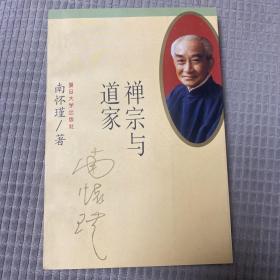 禅宗与
道家
复旦大学出版社
南怀瑾/著
南怀瑾